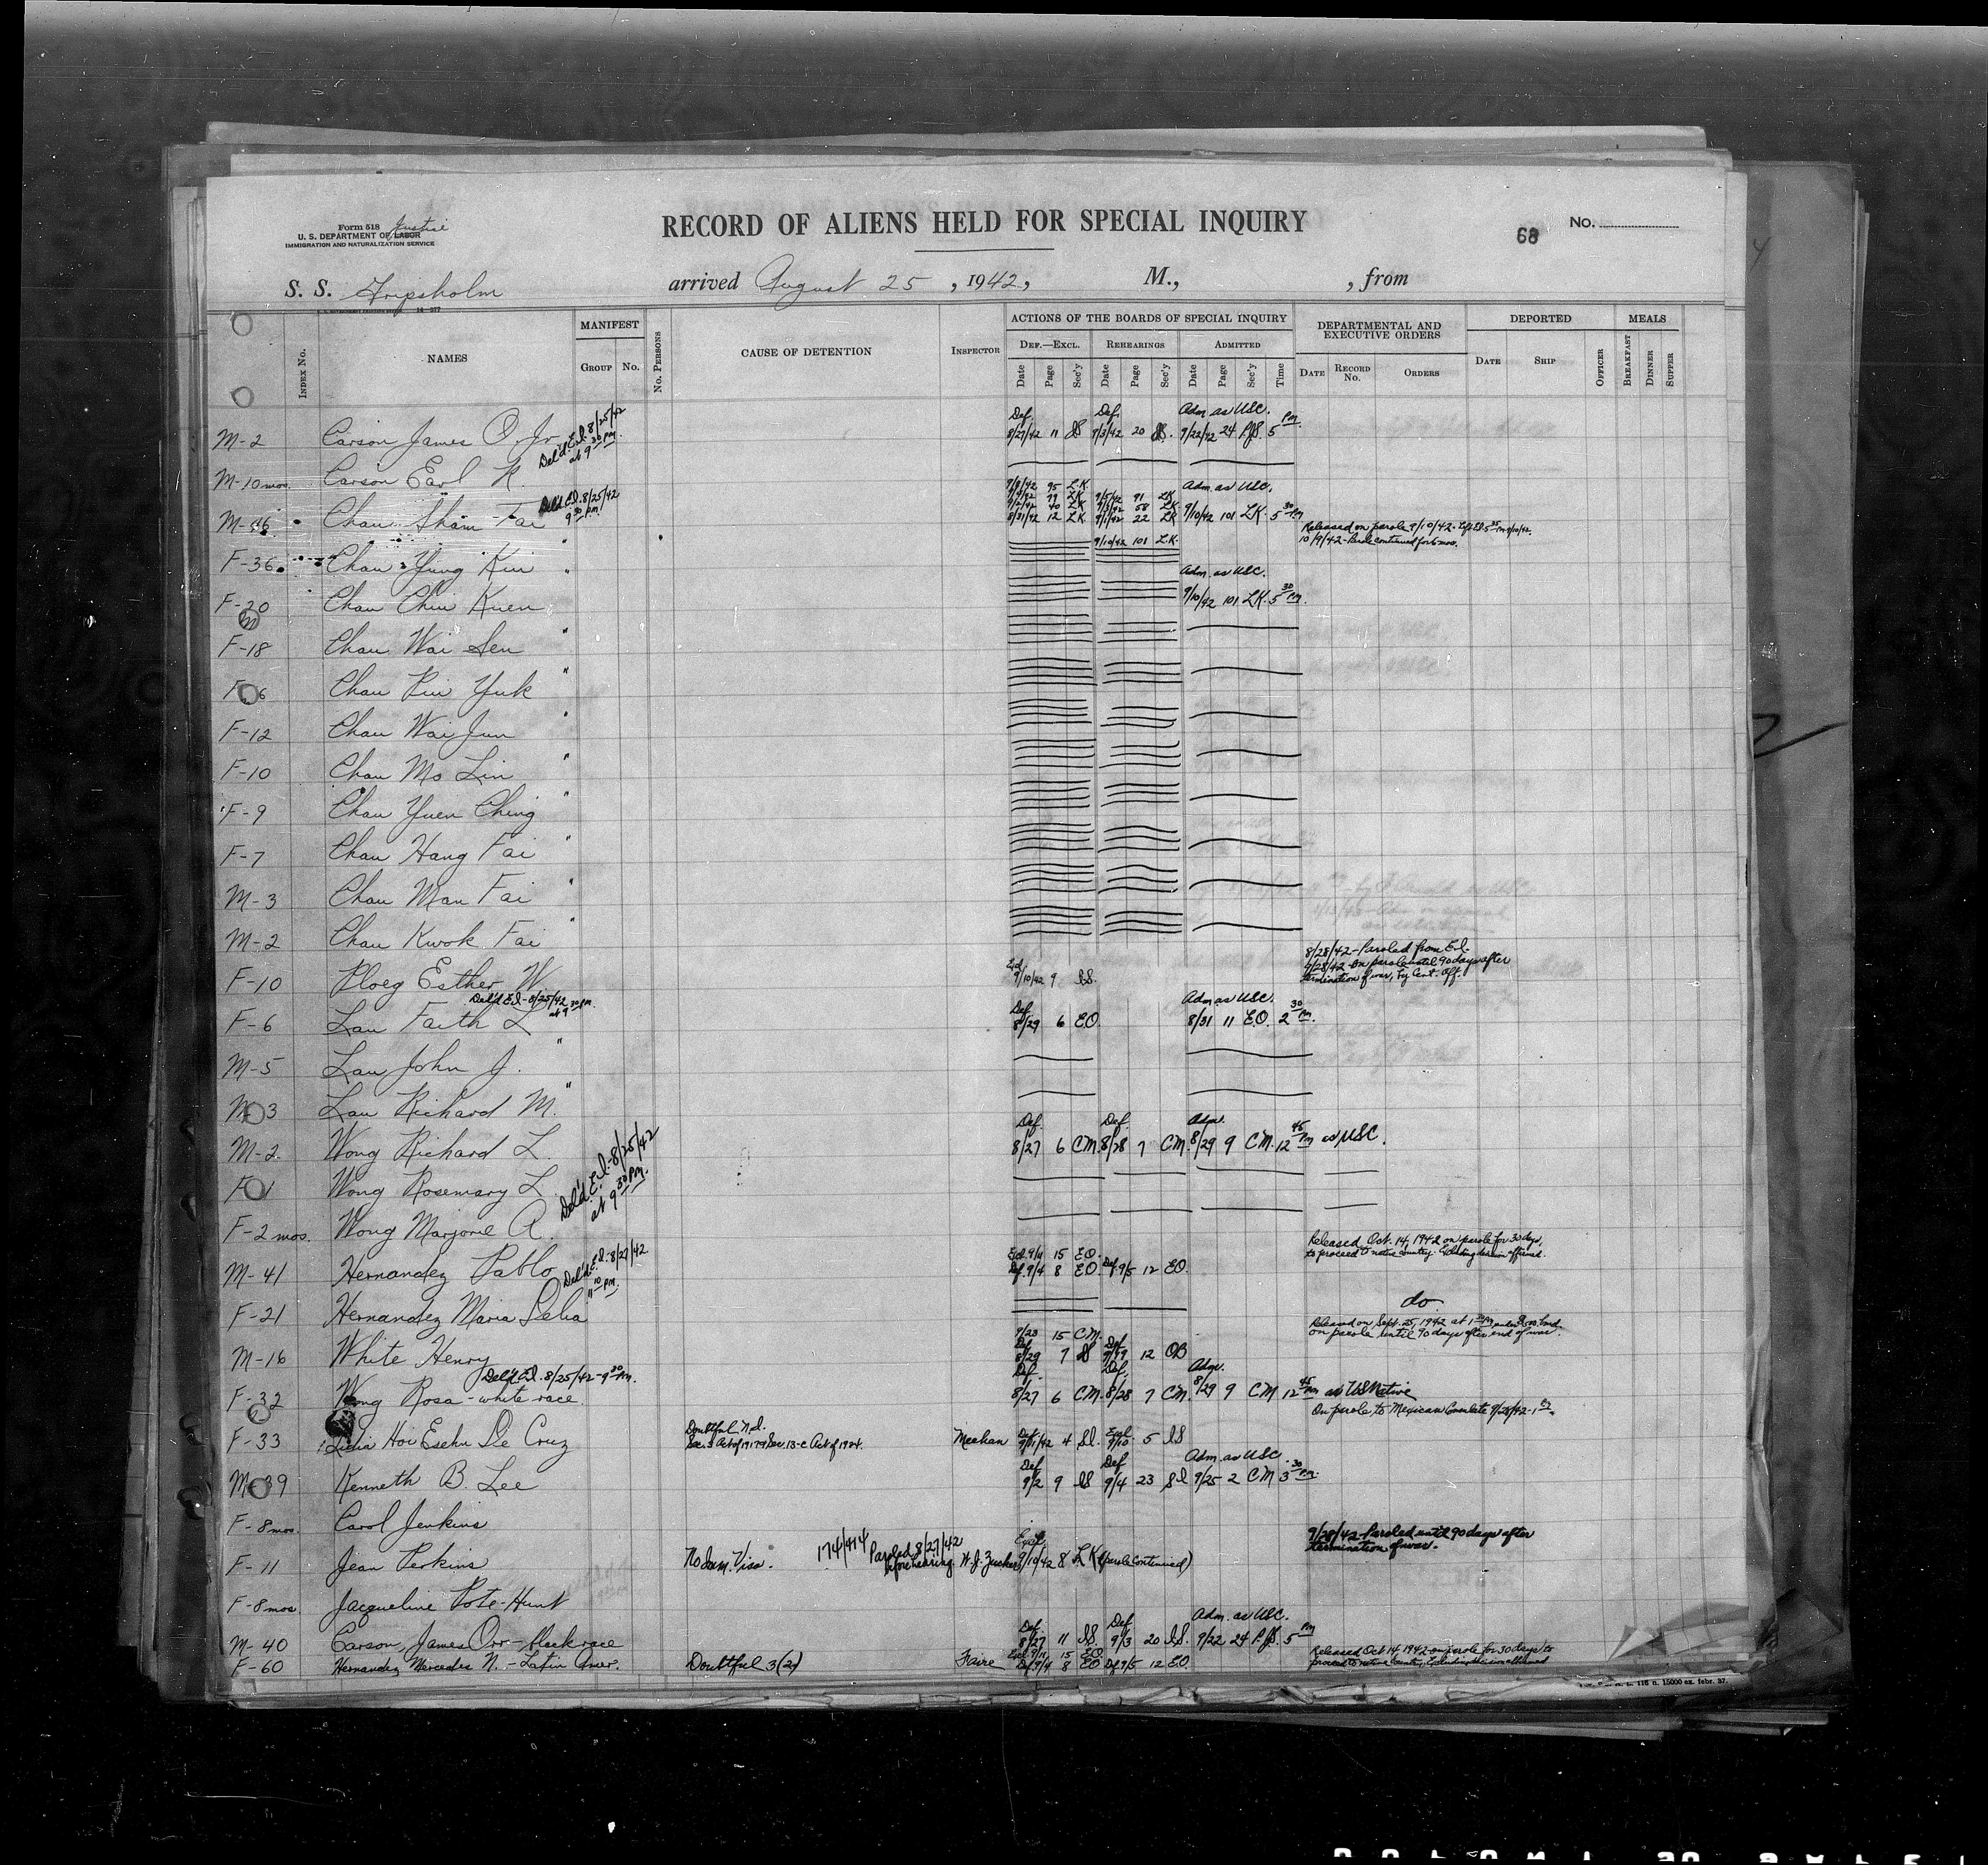 Form 518 Justice
U. S. DEPARTMENT OF LABOR
IMMIGRATION AND NATURALIZATION SERVICE
RECORD OF ALIENS HELD FOR SPECIAL INQUIRY
68
No.
S. S. Gripsholm arrived August 25, 1942, M., , from
INDEX No. NAMES MANIFEST GROUP No. No. PERSONS CAUSE OF DETENTION INSPECTOR
ACTIONS OF THE BOARDS OF SPECIAL INQUIRY
DEF.—EXCL. REHEARINGS ADMITTED
Date Page Sec'y Date Page Sec'y Date Page Sec'y Time
DEPARTMENTAL AND EXECUTIVE ORDERS
DATE RECORD No. ORDERS
DEPORTED
DATE SHIP OFFICER
MEALS
BREAKFAST DINNER SUPPER
Def. Def. Adm. as USC.
M-2 Carson James O. Jr. Del'd E.I. 8/25/42 at 9 30 pm. 8/27/42 11 9/3/42 20 9/22/42 24 5 PM
M-10 mos. Carson Earl R.
9/9/42 95 L.K. Adm. as USC.
79 LK 9/5/42 91 LK
40 LK 9/3/42 58 LK
M-46 Chau Sham Fai Del'd E.I. 8/25/42 9 30 pm. 8/31/42 12 LK 9/1/42 22 LK 9/10/42 101 LK. 5 30 PM
Released on parole 9/10/42.
10/9/42 - Parole continued for 6 mos.
9/10/42 101 L.K.
F-36 Chau Yung Kiu "
Adm. as USC.
F-20 Chau Chiu Kuen 9/10/42 101 LK. 5 30 PM.
F-18 Chau Wai Sen "
F 6 Chau Piu Yuk "
F-12 Chau Wai Jun "
F-10 Chau Mo Lin "
F-9 Chau Yuen Ching "
F-7 Chau Hang Fai "
M-3 Chau Man Fai "
M-2 Chau Kwok Fai "
8/28/42 - Paroled from E.I.
F-10 Ploeg Esther W. Excl. 9/10/42 9 on parole until 90 days after
termination of war, by Cent. Off.
Del'd E.I. - 8/25/42 at 9 30 pm.
Def. Adm as USC.
F-6 Lau Faith L. 8/29 6 E.O. 8/31 11 E.O. 2 30 PM.
M-5 Lau John J. "
M 3 Lau Richard M. "
Def. Def. Adm.
M-2 Wong Richard L. 8/27 6 CM. 8/28 7 CM. 8/29 9 CM. 12 45 PM as USC.
F 1 Wong Rosemary L. Del'd E.I. - 8/25/42 at 9 30 pm.
F-2 mos. Wong Marjorie A.
Released Oct. 14, 1942 on parole for 30 days,
Excl. 9/11 15 EO. to proceed to native country. Excluding decision affirmed.
M-41 Hernandez Pablo Del'd E.I. 8/27/42 11 10 pm. Def. 9/4 8 EO. Def. 9/5 12 EO.
F-21 Hernandez Maria Delia do
Released on Sept. 25, 1942 at
9/23 15 CM. on parole until 90 days after end of war.
M-16 White Henry Def. 8/29 7 Def. 12 OB
Del'd E.I. 8/25/42 - 9 30 PM.
Def. Def. Adm.
F-32 Wong Rosa - white race 8/27 6 CM. 8/28 7 CM. 8/29 9 CM 12 45 PM as US Native
On parole, to Mexican Consulate 9/28/42
Doubtful N.I.
F-33 Lidia Hoi Esehu De Cruz Sec. 3 Act of 1917 & Sec. 13-C Act of 1924. Meehan Def. 9/1/42 4 Excl. 9/10 5
Def. Def. Adm. as USC
M-39 Kenneth B. Lee 9/2 9 9/4 23 9/25 2 CM 3 30 PM.
F-8 mos. Carol Jenkins
9/28/42 - Paroled until 90 days after
termination of war.
F-11 Jean Perkins No Imm. Visa. 174/414 Paroled 8/27/42 before hearing Excl. 9/10/42 8 LK (parole continued)
F-8 mos. Jacqueline Pote-Hunt
Def. Def. Adm. as USC.
M-40 Carson, James Orr - black race 8/27 11 9/3 20 9/22 24 5 PM
Excl. 9/11 15 EO. Released Oct. 14, 1942 on parole for 30 days to
F-60 Hernandez Mercedes N. - Latin Amer. Doubtful 3(2) Faire Def. 9/4 8 EO Def. 9/5 12 EO. proceed to native country, Excluding decision affirmed
116 a. 15000 ex. febr. 37.